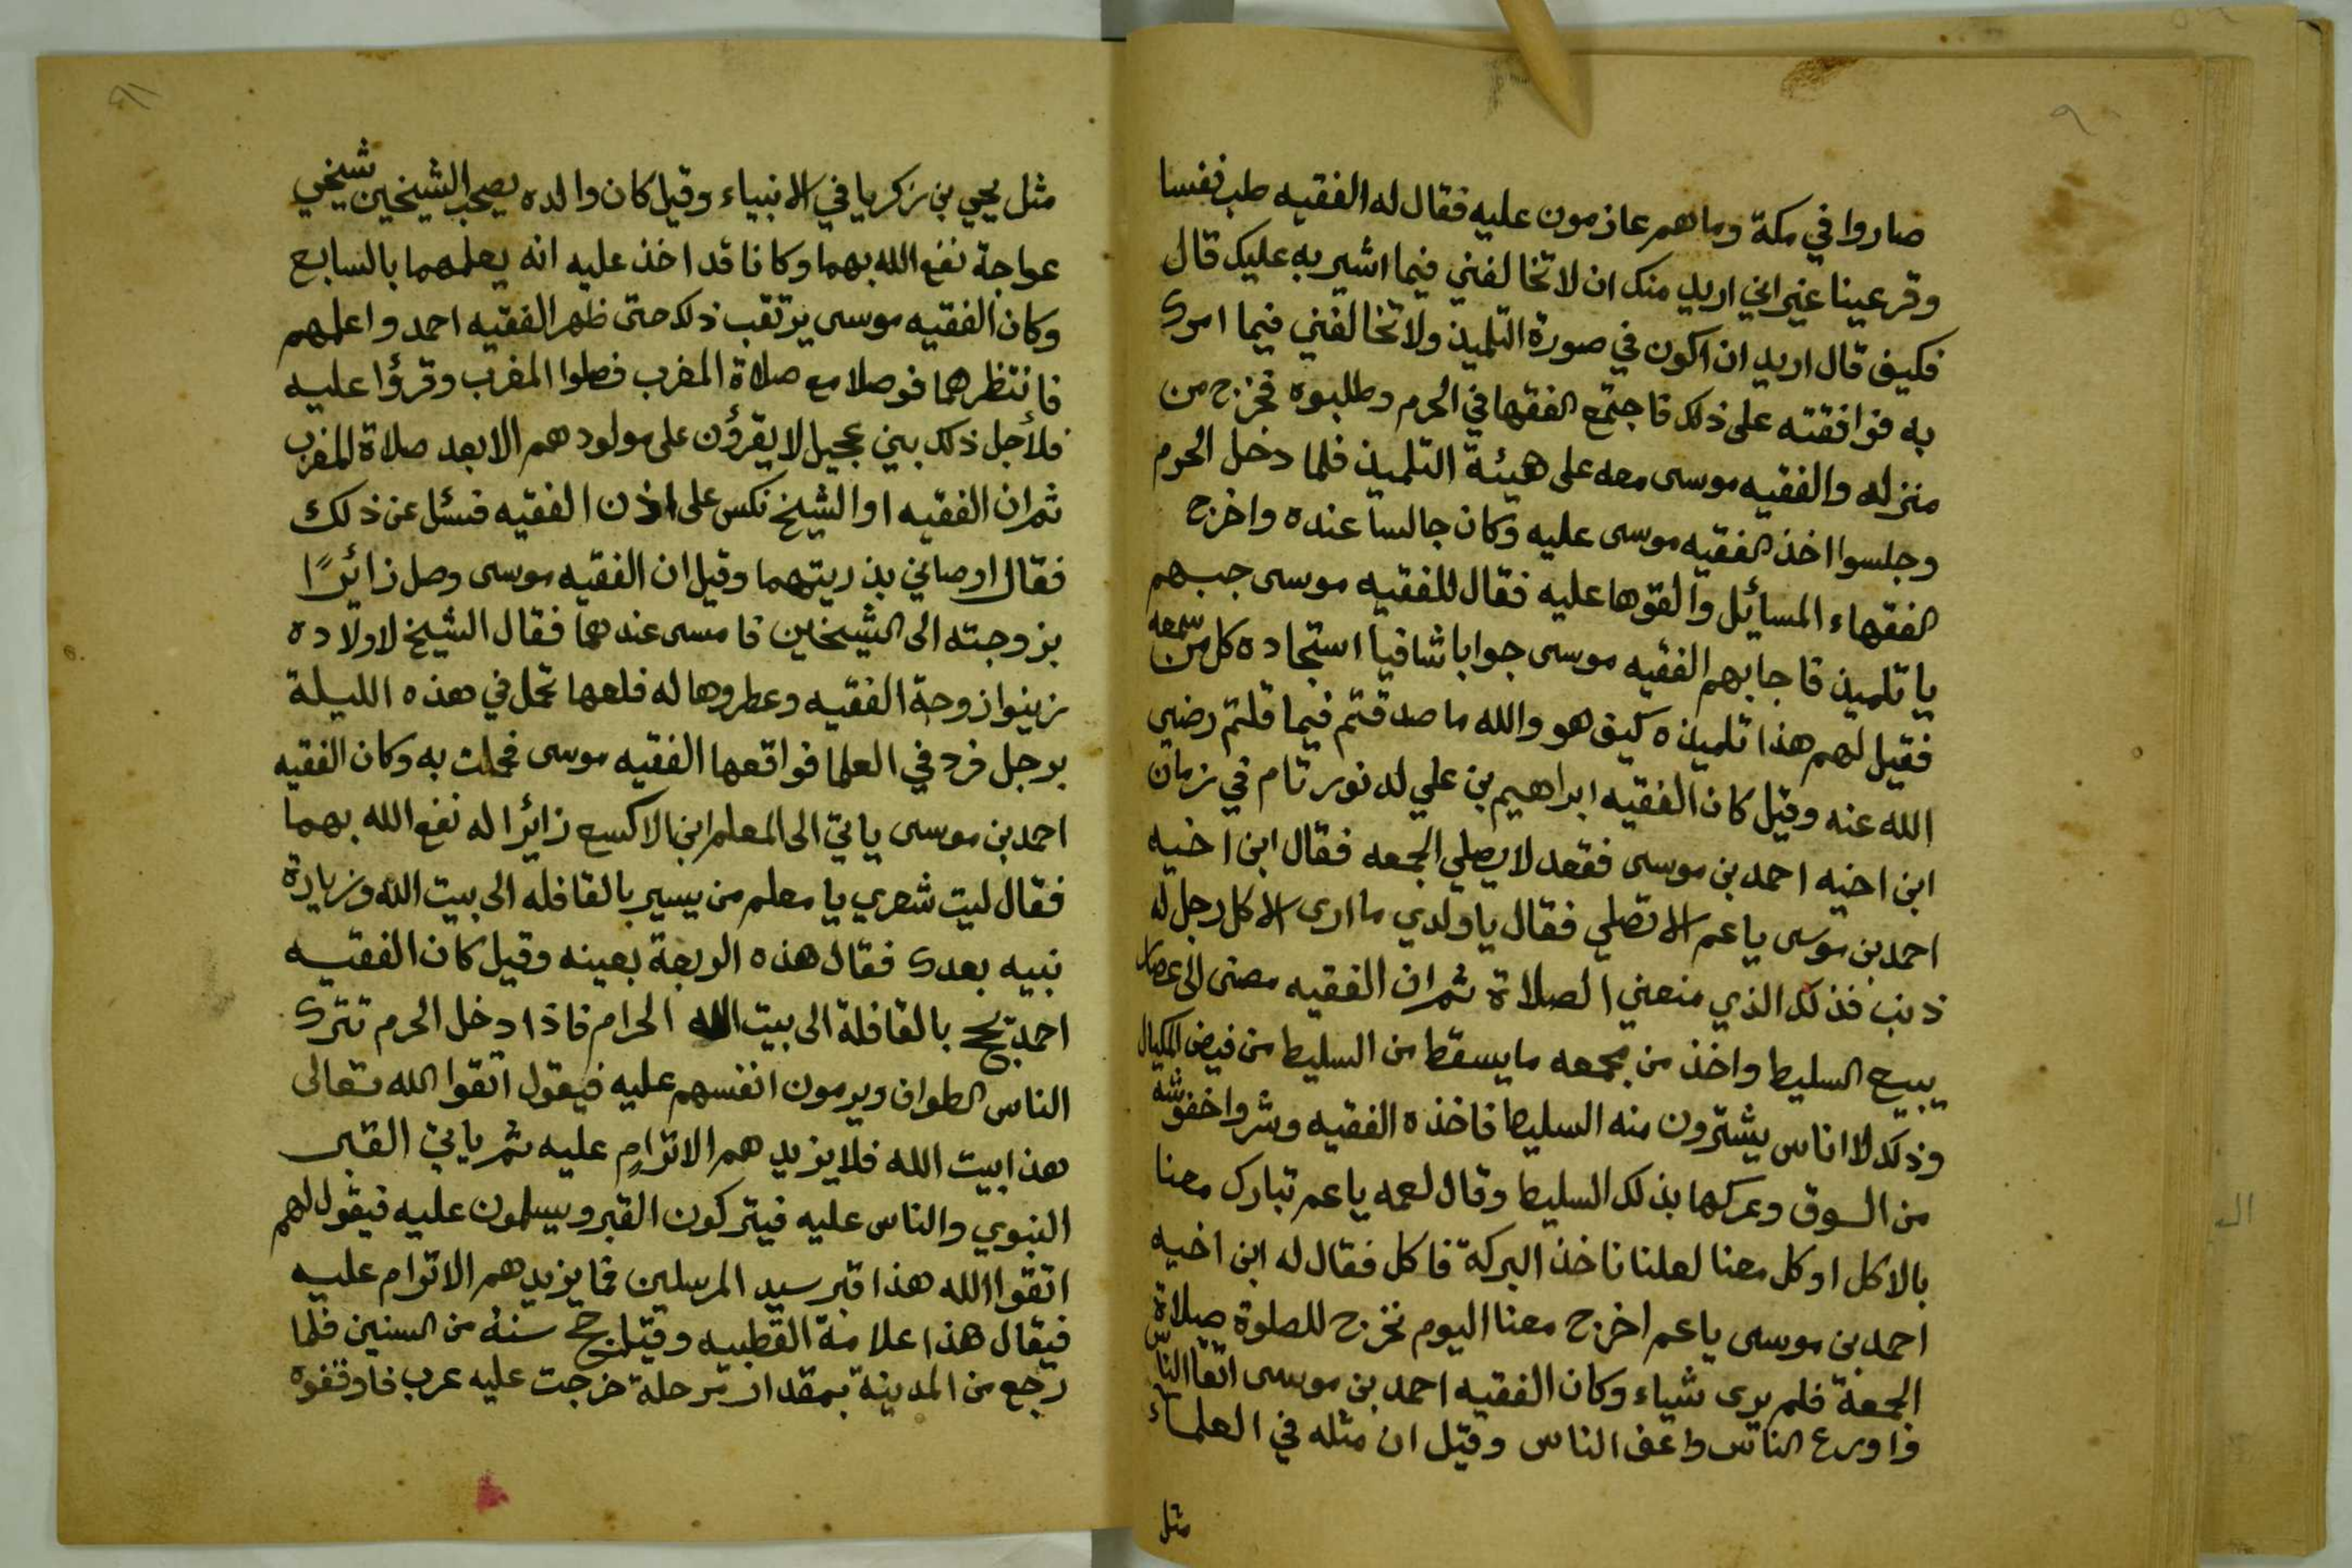 صاروا في مكة وما هم عازمون عليه فقال له الفقيه طب نفسا
وقر عينا غير اني اريد منك ان لا تخالفني فيما اشير به عليك قال
فكيف قال اريد ان اكون في صورة التلميذ ولا تخالفني فيما امرك
به فوافقته على ذلك فاجتمع الفقها في الحرم وطلبوه فخرج من
منزله والفقيه موسى معه على هيئة التلميذ فلما دخل الحرم
وجلسوا اخذ الفقيه موسى عليه وكان جالسا عنده واخرج
الفقهاء المسائل والقوها عليه فقال للفقيه موسى جبهم
يا تلميذ فاجابهم الفقيه موسى جوابا شافيا استجاده كل من سمعه
فقيل لهم هذا تلميذه كيف هو والله ما صدقتم فيما قلتم رضي
الله عنه وقيل كان الفقيه ابراهيم بن علي له نور تام في زمان
ابن اخيه احمد بن موسى فقعد لا يصلي الجمعه فقال ابن اخيه
احمد بن موسى يا عم الا تصلي فقال يا ولدي ما ارى الا كل رجل له
ذنب فذلك الذي منعني الصلاة ثم ان الفقيه مضى الى عصار
يبيع السليط واخذ من مجمعه ما يسقط من السليط من فيض المكيال
وذلك لا اناس يشترون منه السليط فاخذه الفقيه وشروا خفوشه
من السوق وعركها بذلك السليط وقال لعمه يا عم تبارك معنا
بالاكل او كل معنا لعلنا ناخذ البركة فاكل فقال له ابن اخيه
احمد بن موسى يا عم اخرج معنا اليوم نخرج للصلوة صلاة
الجمعة فلم يرى شياء وكان الفقيه احمد بن موسى اتقا الناس
واورع الناس واعف الناس وقيل ان مثله في العلماء
مثل
مثل يحيي بن زكريا في الانبياء وقيل كان والده يصحب الشيخين شيخي
عواجة نفع الله بهما وكانا قد اخذ عليه انه يعلمهما بالسابع
وكان الفقيه موسى يرتقب ذلك حتى ظهر الفقيه احمد واعلمهم
فانتظرهما فوصلا مع صلاة المغرب فصلوا المغرب وقرؤا عليه
فلأجل ذلك بني عجيل لا يقرؤن على مولودهم الا بعد صلاة المغرب
ثم ان الفقيه او الشيخ نكس على اذن الفقيه فسئل عن ذلك
فقال اوصاني بذريتهما وقيل ان الفقيه موسى وصل زائرًا
بزوجته الى الشيخين فامسى عندهما فقال الشيخ لاولاده
زينوا زوجة الفقيه وعطروها له فلعها تحمل في هذه الليلة
برجل فرد في العلما فواقعها الفقيه موسى فحملت به وكان الفقيه
احمد بن موسى ياتي الى المعلم ابن الاكسع زائرا له نفع الله بهما
فقال ليت شعري يا معلم من يسير بالقافله الى بيت الله وزيارة
نبيه بعدك فقال هذه الربعة بعينه وقيل كان الفقيه
احمد يحج بالقافلة الى بيت الله الحرام فاذا دخل الحرم تترك
الناس الطواف ويرمون انفسهم عليه فيقول اتقوا الله تعالى
هذا بيت الله فلا يزيدهم الا تزامٍ عليه ثم ياتي القبر
النبوي والناس عليه فيتركون القبر ويسلمون عليه فيقول لهم
اتقوا الله هذا قبر سيد المرسلين فما يزيدهم الا تزام عليه
فيقال هذا علامة القطبيه وقيل حج سنة من السنين فلما
رجع من المدينة بمقدار مرحلة خرجت عليه عرب فاوقفوه